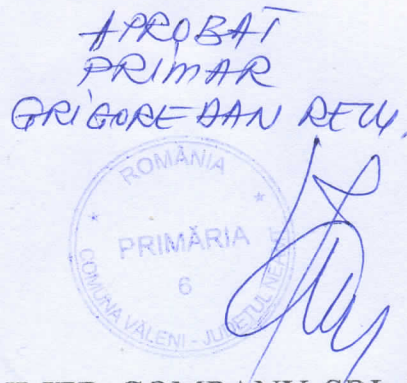 APROBAT
PRIMAR
GRIGORE DAN
ROMÂNIA
PRIMĂRIA
6
COMUNA VĂLENI - JUDEȚUL NEAMȚ
COMPANY SRL